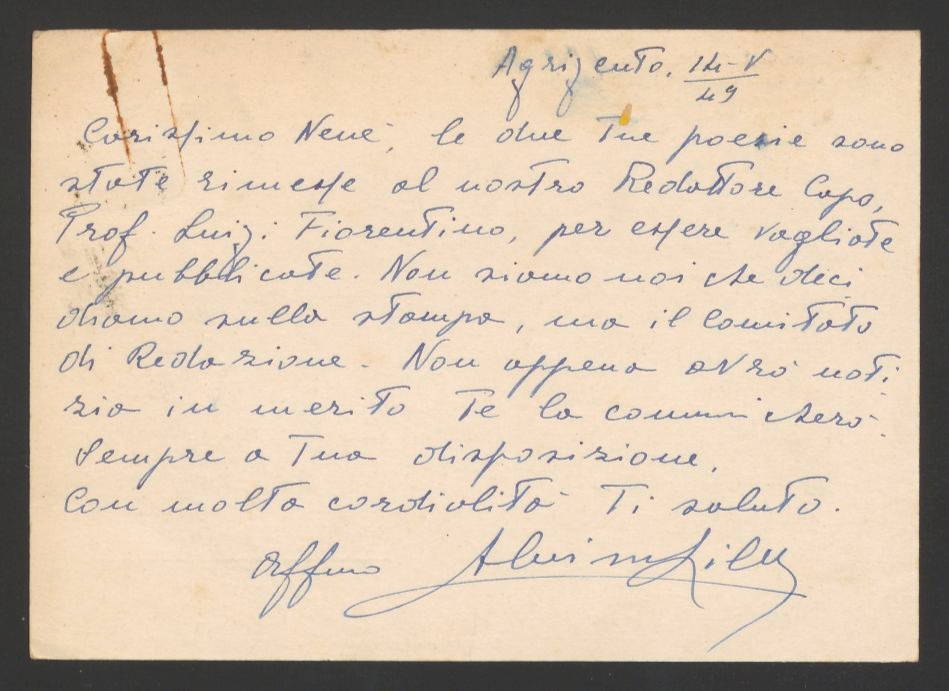 Agrigento, 14-V
49
Carissimo Nenè, le due Tue poesie sono
state rimesse al nostro Redattore Capo,
Prof. Luigi Fiorentino, per essere vagliate
e pubblicate. Non siamo noi che deci
diamo sulla stampa, ma il Comitato
di Redazione. Non appena avrò noti
zia in merito Te la comunicherò.
Sempre a Tua disposizione.
Con molta cordialità Ti saluto.
Affmo